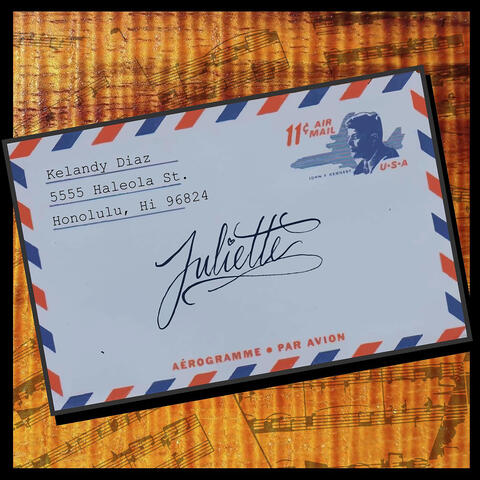 Kelandy Diaz
5555 Haleola St.
Honolulu, Hi 96824
11¢ AIR
MAIL
JOHN F. KENNEDY
U•S•A
Juliette
AÉROGRAMME • PAR AVION